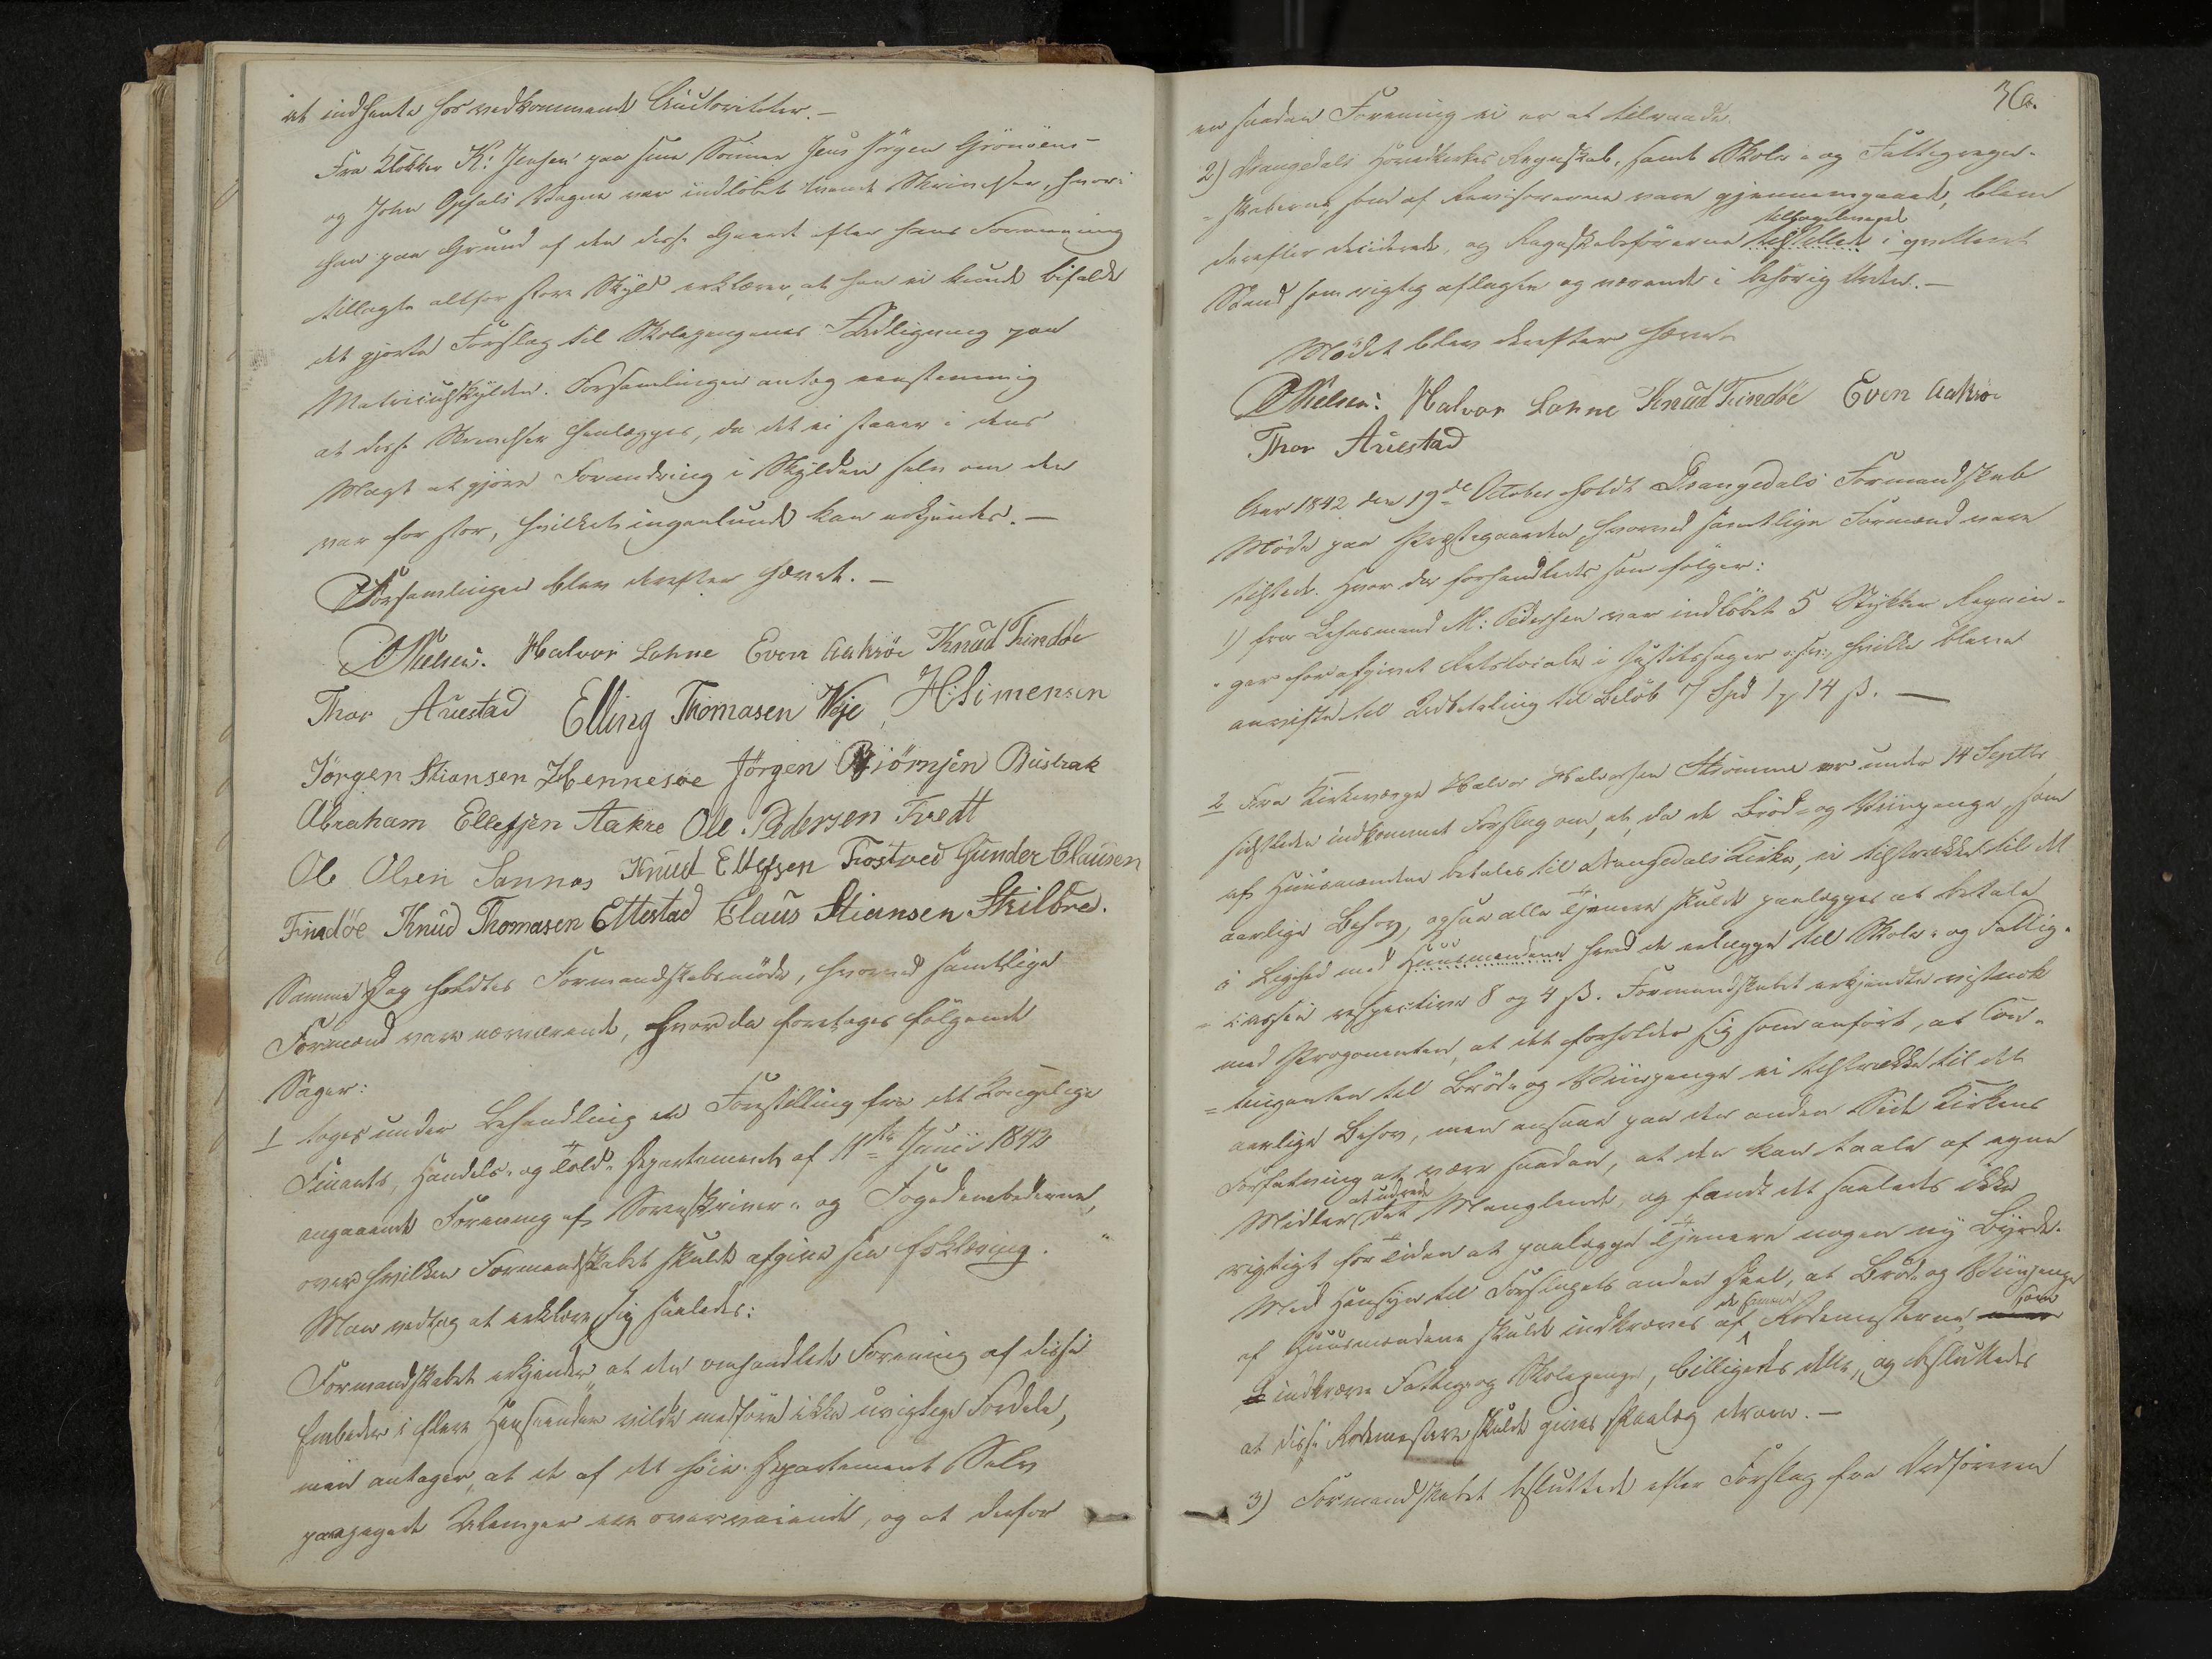 at indhente hos vedkommende Auctoriteter. –
Fra Klokker K: Jensen paa sine Sönner Jens Jörgen
og John Opsals Vegne var indløbet tvende Skrivelser, hvori
han paa Grund af den disse Gaarde efter hans Formening
tillagte altfor store Skyld erklærer, at han ei kunde bifalde
det gjorte Forslag til Skolepengenes Udligning paa
Matriculskylden. Forsamlingen antog eenstemmig
at disse Skrivelser henlægges, da det ei staaer i dens
Magt at gjøre Forandring i Skylden selv om den
var for stor, hvilket ingenlunde kan erkjendes. –
Forsamlingen blev derefter hævet. –
Nielsen. Halvor Lohne Even Aakröe Knud Findöe
Thor Auestad Elling Thomasen Weje H. Simensen
Jörgen Stiansen Hennesøe Jörgen Biörnsen Bustrak
Abraham Ellefsen Aakre Ole Pedersen Tvedt
Ole Olsen Sannæs Knud Ellefsen Trostved Gunder Clausen
Findöe Knud Thomasen Ettestad Claus Stiansen Skilbred.
Samme Dag holdtes Formandskabsmöde, hvorved samtlige
Formænd vare nærværende, hvor da foretoges følgende
Sager:
1 toges under Behandling en Forestilling fra det Kongelige
Finants, Handels- og Told-Departement af 11te Junii 1842
angaaende Forening af Sorenskriver- og Fogedembederne,
over hvilken Formandskabet skulde afgive sin Erklæring.
Man vedtog at erklære sig saaledes:
Formandskabet erkjender, at den omhandlede Forening af disse
Embeder i flere Henseender vilde medføre ikke uvigtige Fordele,
men antager, at de af det høie Departement Selv
paapegede Ulemper ere overveiende, og at derfor
36.
en saadan Forening ei er at tilraade.
2) Drangedals Hovedkirkes Regnskab, samt Skole- og Fattigregn-
skaberne, som af Revisorerne vare gjennemgaaede, bleve
tilbageleveret
derefter deciderede, og Regnskabsförerne tilstillet i qvitteret
Stand som rigtig aflagte og værende i behörig Orden. –
Mödet blev derefter hævet
Nielsen. Halvor Lohne Knud Findöe Even Aakröe
Thor Auestad
Aar 1842 den 19de October holdt Drangedals Formandskab
Möde paa Præstegaarden, hvorved samtlige Formænd vare
tilstede. Hvor da forhandledes som fölger:
1) fra Lehnsmand M: Pedersen var indløbet 5 Stykker Regnin-
ger for afgivet Retslocale i Justitssager hvilke bleve
anviste til Udbetaling til Beløb 7 Spd 1 14 ß. –
2 Fra Kirkeværge Halvor Halvorsen Strømme er under 14 Septbr
sidstleden indkommet Forslag om, at, da de Bröd- og Viinpenge, som
af Huusmændene betales til Drangedals Kirke, ei tilstrække til det
aarlige Behov, ogsaa alle Tjenere skulde paalægges at betale
i Lighed med Huusmændene hvad de erlægge til Skole- og Fattig-
cassen respective 8 og 4 ß. Formandskabet erkjendte vistnok
med Proponenten, at det forholder sig som anført, at Con-
tingenten til Bröd- og Viinpenge ei tilstrække til det
aarlige Behov, men ansaae paa den anden Side Kirkens
Forfatning at være saadan, at den kan taale af egne
at udrede
Midler det Manglende, og fandt det saaledes ikke
rigtigt for Tiden at paalægge Tjenere nogen ny Byrde.
Med Hensyn til Forslagets anden Deel, at Bröd- og Viinpenge
de samme som
af Huusmændene skulde indkræves af Rodemesterne
indkræve Fattig- og Skolepenge, billigedes dette, og besluttedes
at disse Rodemestere skulde gives Paalæg derom. –
3) Formandskabet besluttede efter Forslag fra Ordföreren